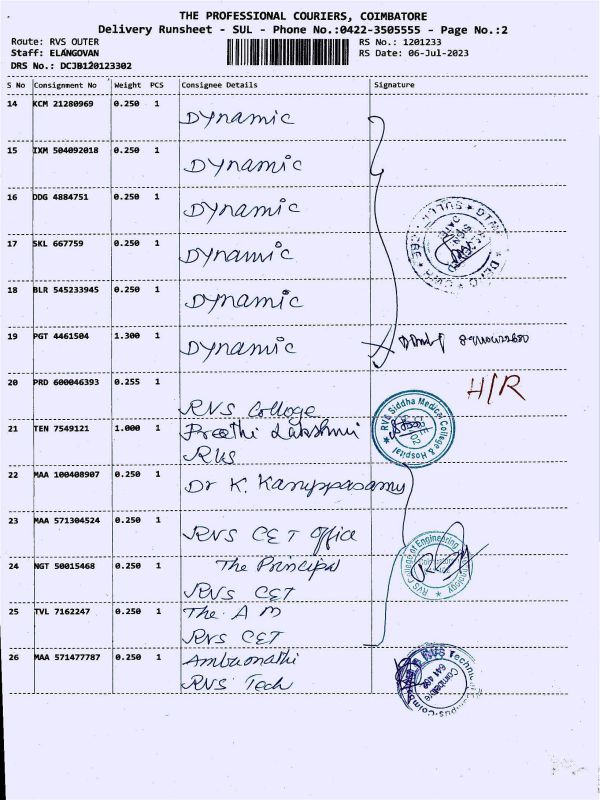 THE PROFESSIONAL COURIERS, COIMBATORE
Delivery Runsheet - SUL - Phone No.:0422-3505555 - Page No.:2
Route: RVS OUTER RS No.: 1201233
Staff: ELANGOVAN RS Date: 06-Jul-2023
DRS No.: DCJB120123302
S No Consignment No Weight PCS Consignee Details Signature
14 KCM 21280969 0.250 1 Dynamic
15 IXM 504092018 0.250 1 Dynamic
16 DDG 4884751 0.250 1 Dynamic
17 SKL 667759 0.250 1 Dynamic
18 BLR 545233945 0.250 1 Dynamic
19 PGT 4461504 1.300 1 Dynamic
20 PRD 600046393 0.255 1 RVS College
H/R
21 TEN 7549121 1.000 1 Preethi Lakshmi
RVS
RVS Siddha Medical College & Hospital
22 MAA 100408907 0.250 1 Dr K. Karuppasamy
23 MAA 571304524 0.250 1 RVS CET Office
24 NGT 50015468 0.250 1 The Principal
RVS CET
RVS College of Engineering
25 TVL 7162247 0.250 1 The A M
RVS CET
26 MAA 571477787 0.250 1
RVS Tech
RVS Technical Campus-Coimbatore
Coimbatore
641 402